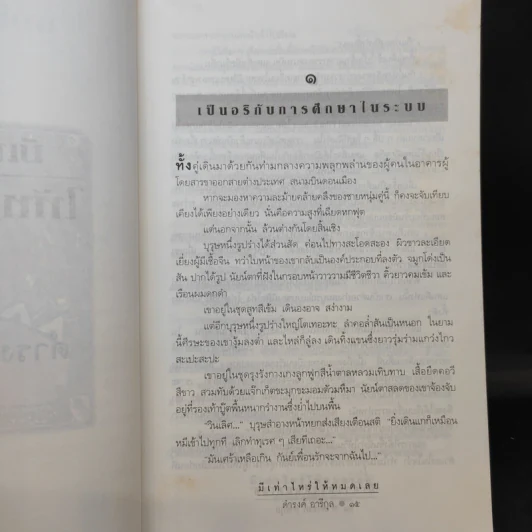 ๑
เป็นอริกับการศึกษาในระบบ
ทั้งคู่เดินมาด้วยกันท่ามกลางความพลุกพล่านของผู้คนในอาคารผู้
โดยสารขาออกสายต่างประเทศ สนามบินดอนเมือง
หากจะมองหาความละม้ายคล้ายคลึงของชายหนุ่มคู่นี้ ก็คงจะจับเทียบ
เคียงได้เพียงอย่างเดียว นั่นคือความสูงที่เฉียดหกฟุต
แต่นอกจากนั้น ล้วนต่างกันโดยสิ้นเชิง
บุรุษหนึ่งรูปร่างได้ส่วนสัด ค่อนไปทางสะโอดสะอง ผิวขาวละเอียด
เยี่ยงผู้มีเชื้อจีน ทว่าใบหน้าของเขากลับเป็นองค์ประกอบที่ลงตัว จมูกโด่งเป็น
สัน ปากได้รูป นัยน์ตาที่ฝังในกรอบหน้าวาววามมีชีวิตชีวา คิ้วยาวคมเข้ม และ
เรือนผมดกดำ
เขาอยู่ในชุดสูทสีเข้ม เดินองอาจ สง่างาม
แต่อีกบุรุษหนึ่งรูปร่างใหญ่โตเทอะทะ ลำคอล่ำสันเป็นหนอก ในยาม
นี้ศีรษะของเขางุ้มลงต่ำ และไหล่ก็ลู่ลง เดินทิ้งแขนซึ่งยาวรุ่มร่ามแกว่งไกว
สะเปะสะปะ
เขาอยู่ในชุดรุงรังกางเกงลูกฟูกสีน้ำตาลหลวมเทิบทาบ เสื้อยืดคอวี
สีขาว สวมทับด้วยแจ๊กเก็ตขะมุกขะมอมตัวมหึมา นัยน์ตาสลดของเขาจ้องจับ
อยู่ที่รองเท้าบู๊ตพื้นหนากว่างานซึ่งย่ำไปบนพื้น
“วินเลิศ...” บุรุษสำอางหน้าหยกส่งเสียงเตือนสติ “ยิ่งเดินแกก็เหมือน
หมีเข้าไปทุกที เลิกทำทุเรศ ๆ เสียทีเถอะ...”
“มันเศร้าเหลือเกิน กันย์เพื่อนรักจะจากฉันไป...”
มีเท่าไหร่ให้หมดเลย
ดำรงค์ อารีกุล ๑๕